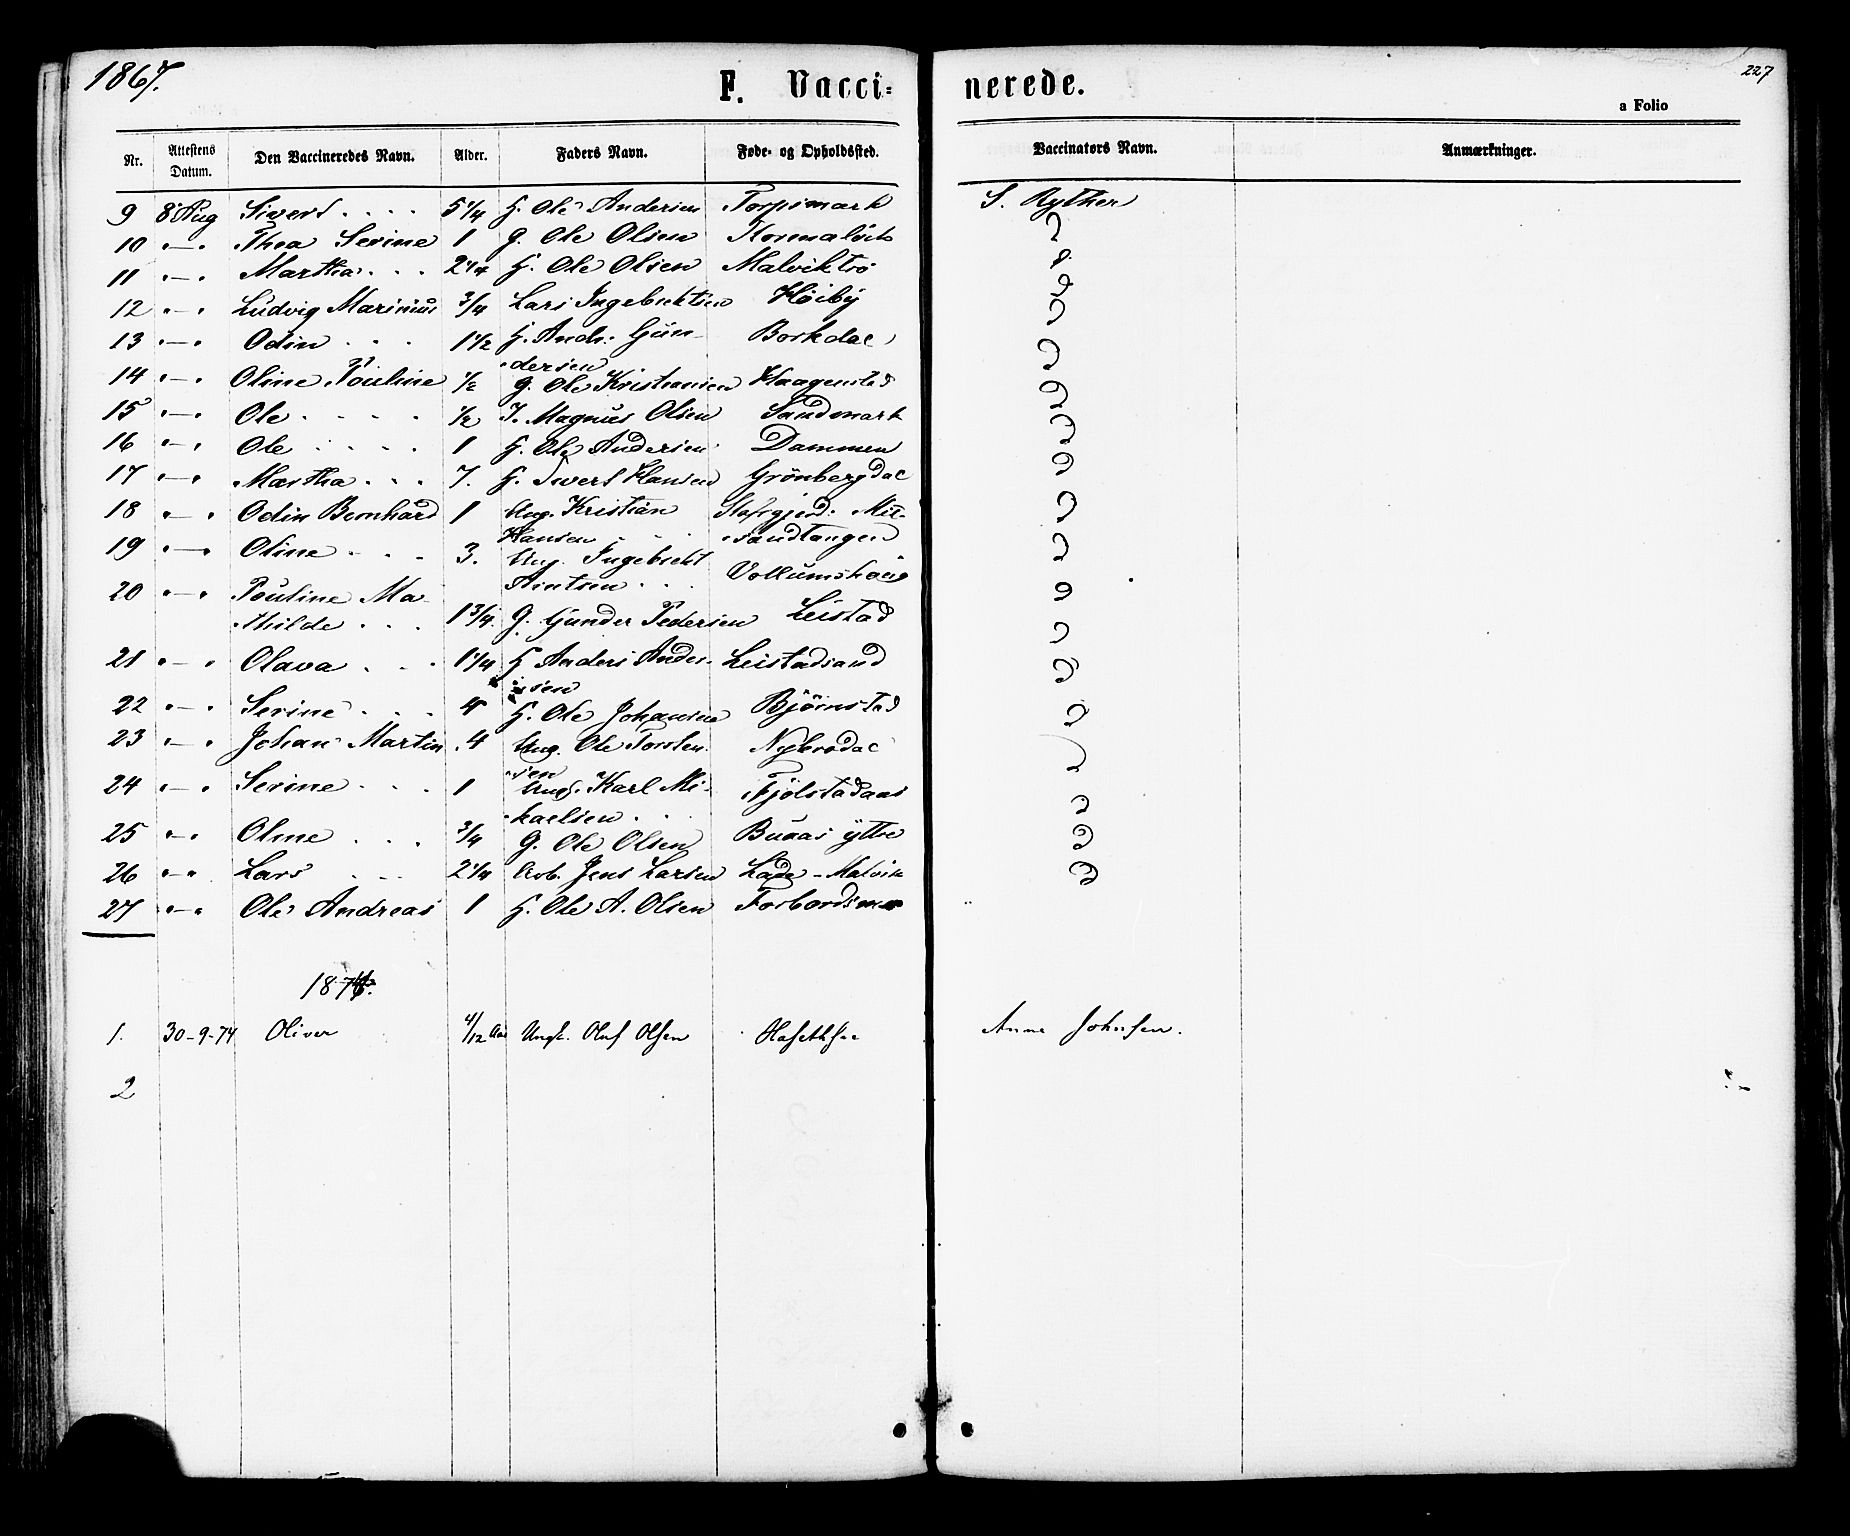 1867.
F. Vacci- nerede.
227
a Folio
Nr. Attestens Datum. Den Vaccineredes Navn. Alder. Faders Navn. Føde- og Opholdssted. Vaccinators Navn. Anmærkninger.
9 8 Aug Sivert . . . . 5 1/4 G. Ole Andersen Torpsmark S. Ryther
10 "—" Thea Serine 1 G. Ole Olsen
11 "—" Martha . . . 2 1/4 G. Ole Olsen Malviktrø
12 "—" Ludvig Marinius 3/4 Lars Ingebriktsen Høiby
13 "—" Odin . . . 1 1/2 G. Andr. Gun-
dersen Borkdal
14 "—" Oline Pouline 1/2 G. Ole Kristiansen Haagenstad
15 "—" Ole . . . . 1/2 I. Magnus Olsen Sandmark
16 "—" Ole . . . . 1 G. Ole Andersen Dammen
17 "—" Martha . . . 7. G. Sivert Hansen Grønbergdal
18 "—" Odin Bernhard 1 Ung. Kristian
Hansen
sandtangen
19 "—" Oline . . . 3. Ung. Ingebrekt
Arntsen . . Vollumshaug
20 "—" Pouline Ma-
thilde . . . 1 3/4. G. Gunder Pedersen Leistad
21 "—" Olava . . . 1 1/4 G. Anders Ander-
sen Leistadsand
22 "—" Serine . . . 4 G. Ole Johansen Bjørnstad
23 "—" Johan Martin 4 Ung. Ole Torsten-
sen Nybrodal
24 "—" Serine . . . 1 Ungk. Karl Mi-
kaelsen . . Fjølstadaas
25 "—" Oline . . . 3/4 G. Ole Olsen Buaas yttre
26 "—" Lars . . 2 1/4 Arb. Jens Larsen Lade - Malvik
27 "—" Ole Andreas 1 G. Ole A. Olsen
1874.
1. 30-9-74 Oliver 4/12 Aar Ungk. Oluf Olsen Anne Johnsen.
2